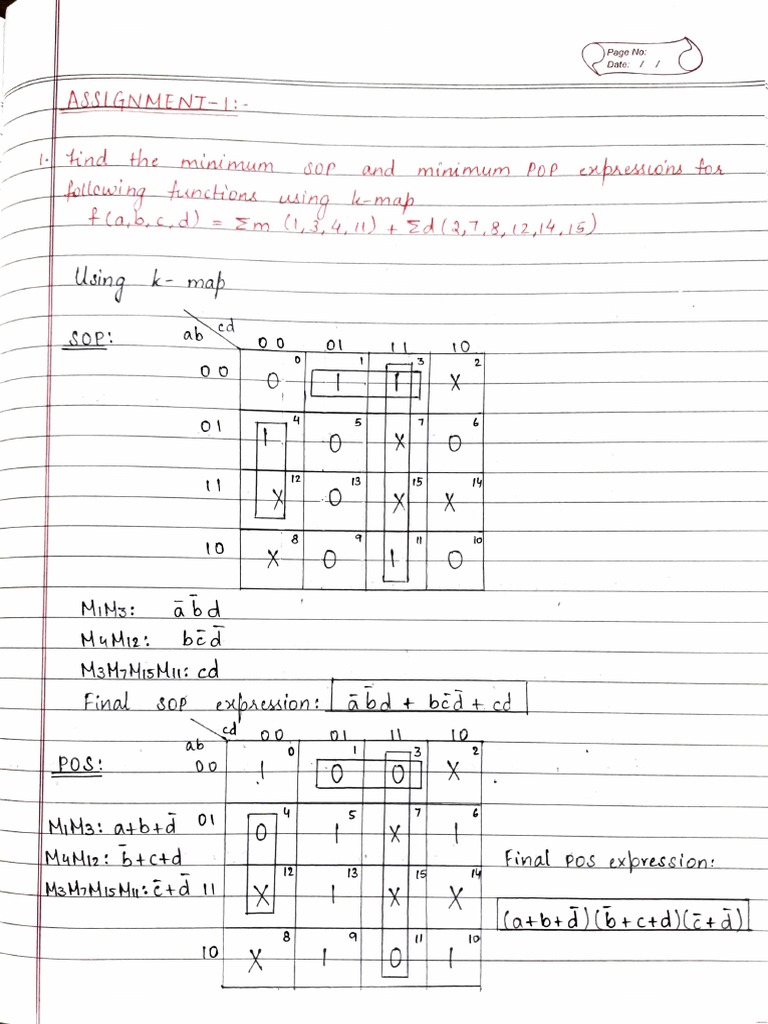 Page No:
Date: / /
ASSIGNMENT-1:-
1. Find the minimum SOP and minimum POP expressions for
following functions using k-map
f(a,b,c,d) = Σm (1,3,4,11) + Σd(2,7,8,12,14,15)
Using k-map
SOP:
ab cd 00 01 11 10
00 0 0 1 1 1 3 X 2
01 1 4 0 5 X 7 0 6
11 X 12 0 13 X 15 X 14
10 X 8 0 9 1 11 0 10
M1M3: a̅ b̅ d
M4M12: bc̅d̅
M3M7M15M11: cd
Final SOP expression: a̅b̅d + bc̅d̅ + cd
POS:
ab cd 00 01 11 10
00 1 0 0 1 0 3 X 2
01 0 4 1 5 X 7 1 6
11 X 12 1 13 X 15 X 14
10 X 8 1 9 0 11 1 10
M1M3: a+b+d̅
M4M12: b̅+c+d
M3M7M15M11: c̅+d̅
Final POS expression:
(a+b+d̅)(b̅+c+d)(c̅+d̅)